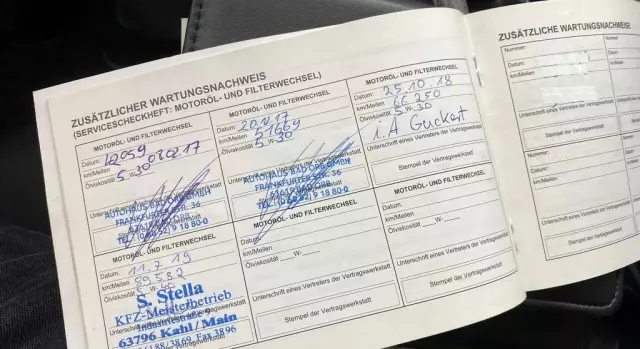 ZUSÄTZLICHER WARTUNGSNACHWEIS
(SERVICESCHECKHEFT: MOTORÖL- UND FILTERWECHSEL)
MOTORÖL- UND FILTERWECHSEL
Datum:
km/Meilen 03.02.17
Ölviskosität 5 W- 30
AUTOHAUS BAD ORB GMBH
FRANKFURTER STR. 36
63619 BAD ORB
MOTORÖL- UND FILTERWECHSEL
Datum:
km/Meilen 51669
Ölviskosität 5 W- 30
Unterschrift eines Vertreters der Vertragswerkstatt
AUTOHAUS BAD ORB GMBH
FRANKFURTER STR. 36
63619 BAD ORB
MOTORÖL- UND FILTERWECHSEL
Datum: 25.10.18
km/Meilen 66 250
Ölviskosität 5 W- 30
i.A Guckert
Unterschrift eines Vertreters der Vertragswerkstatt
Stempel der Vertragswerkstatt
MOTORÖL- UND FILTERWECHSEL
Datum: 11.7.19
km/Meilen 89582
Ölviskosität 5 W-
S. Stella
KFZ-Meisterbetrieb
Industriestraße 9
63796 Kahl/Main
06188/3869, Fax 3896
MOTORÖL- UND FILTERWECHSEL
Datum:
km/Meilen
Ölviskosität ___W-___
Unterschrift eines Vertreters der Vertragswerkstatt
Stempel der Vertragswerkstatt
MOTORÖL- UND FILTERWECHSEL
Datum:
km/Meilen
Ölviskosität ___W-___
Unterschrift eines Vertreters der Vertragswerkstatt
Stempel der Vertragswerkstatt
ZUSÄTZLICHE WARTUNGSNACHWEISE
Nummer:
Datum:
km/Meilen
Unterschrift eines Vertreters der Vertragswerkstatt
Stempel der Vertragswerkstatt
Nummer:
Datum:
km/Meilen
Unterschrift eines Vertreters der Vertragswerkstatt
Stempel der Vertragswerkstatt